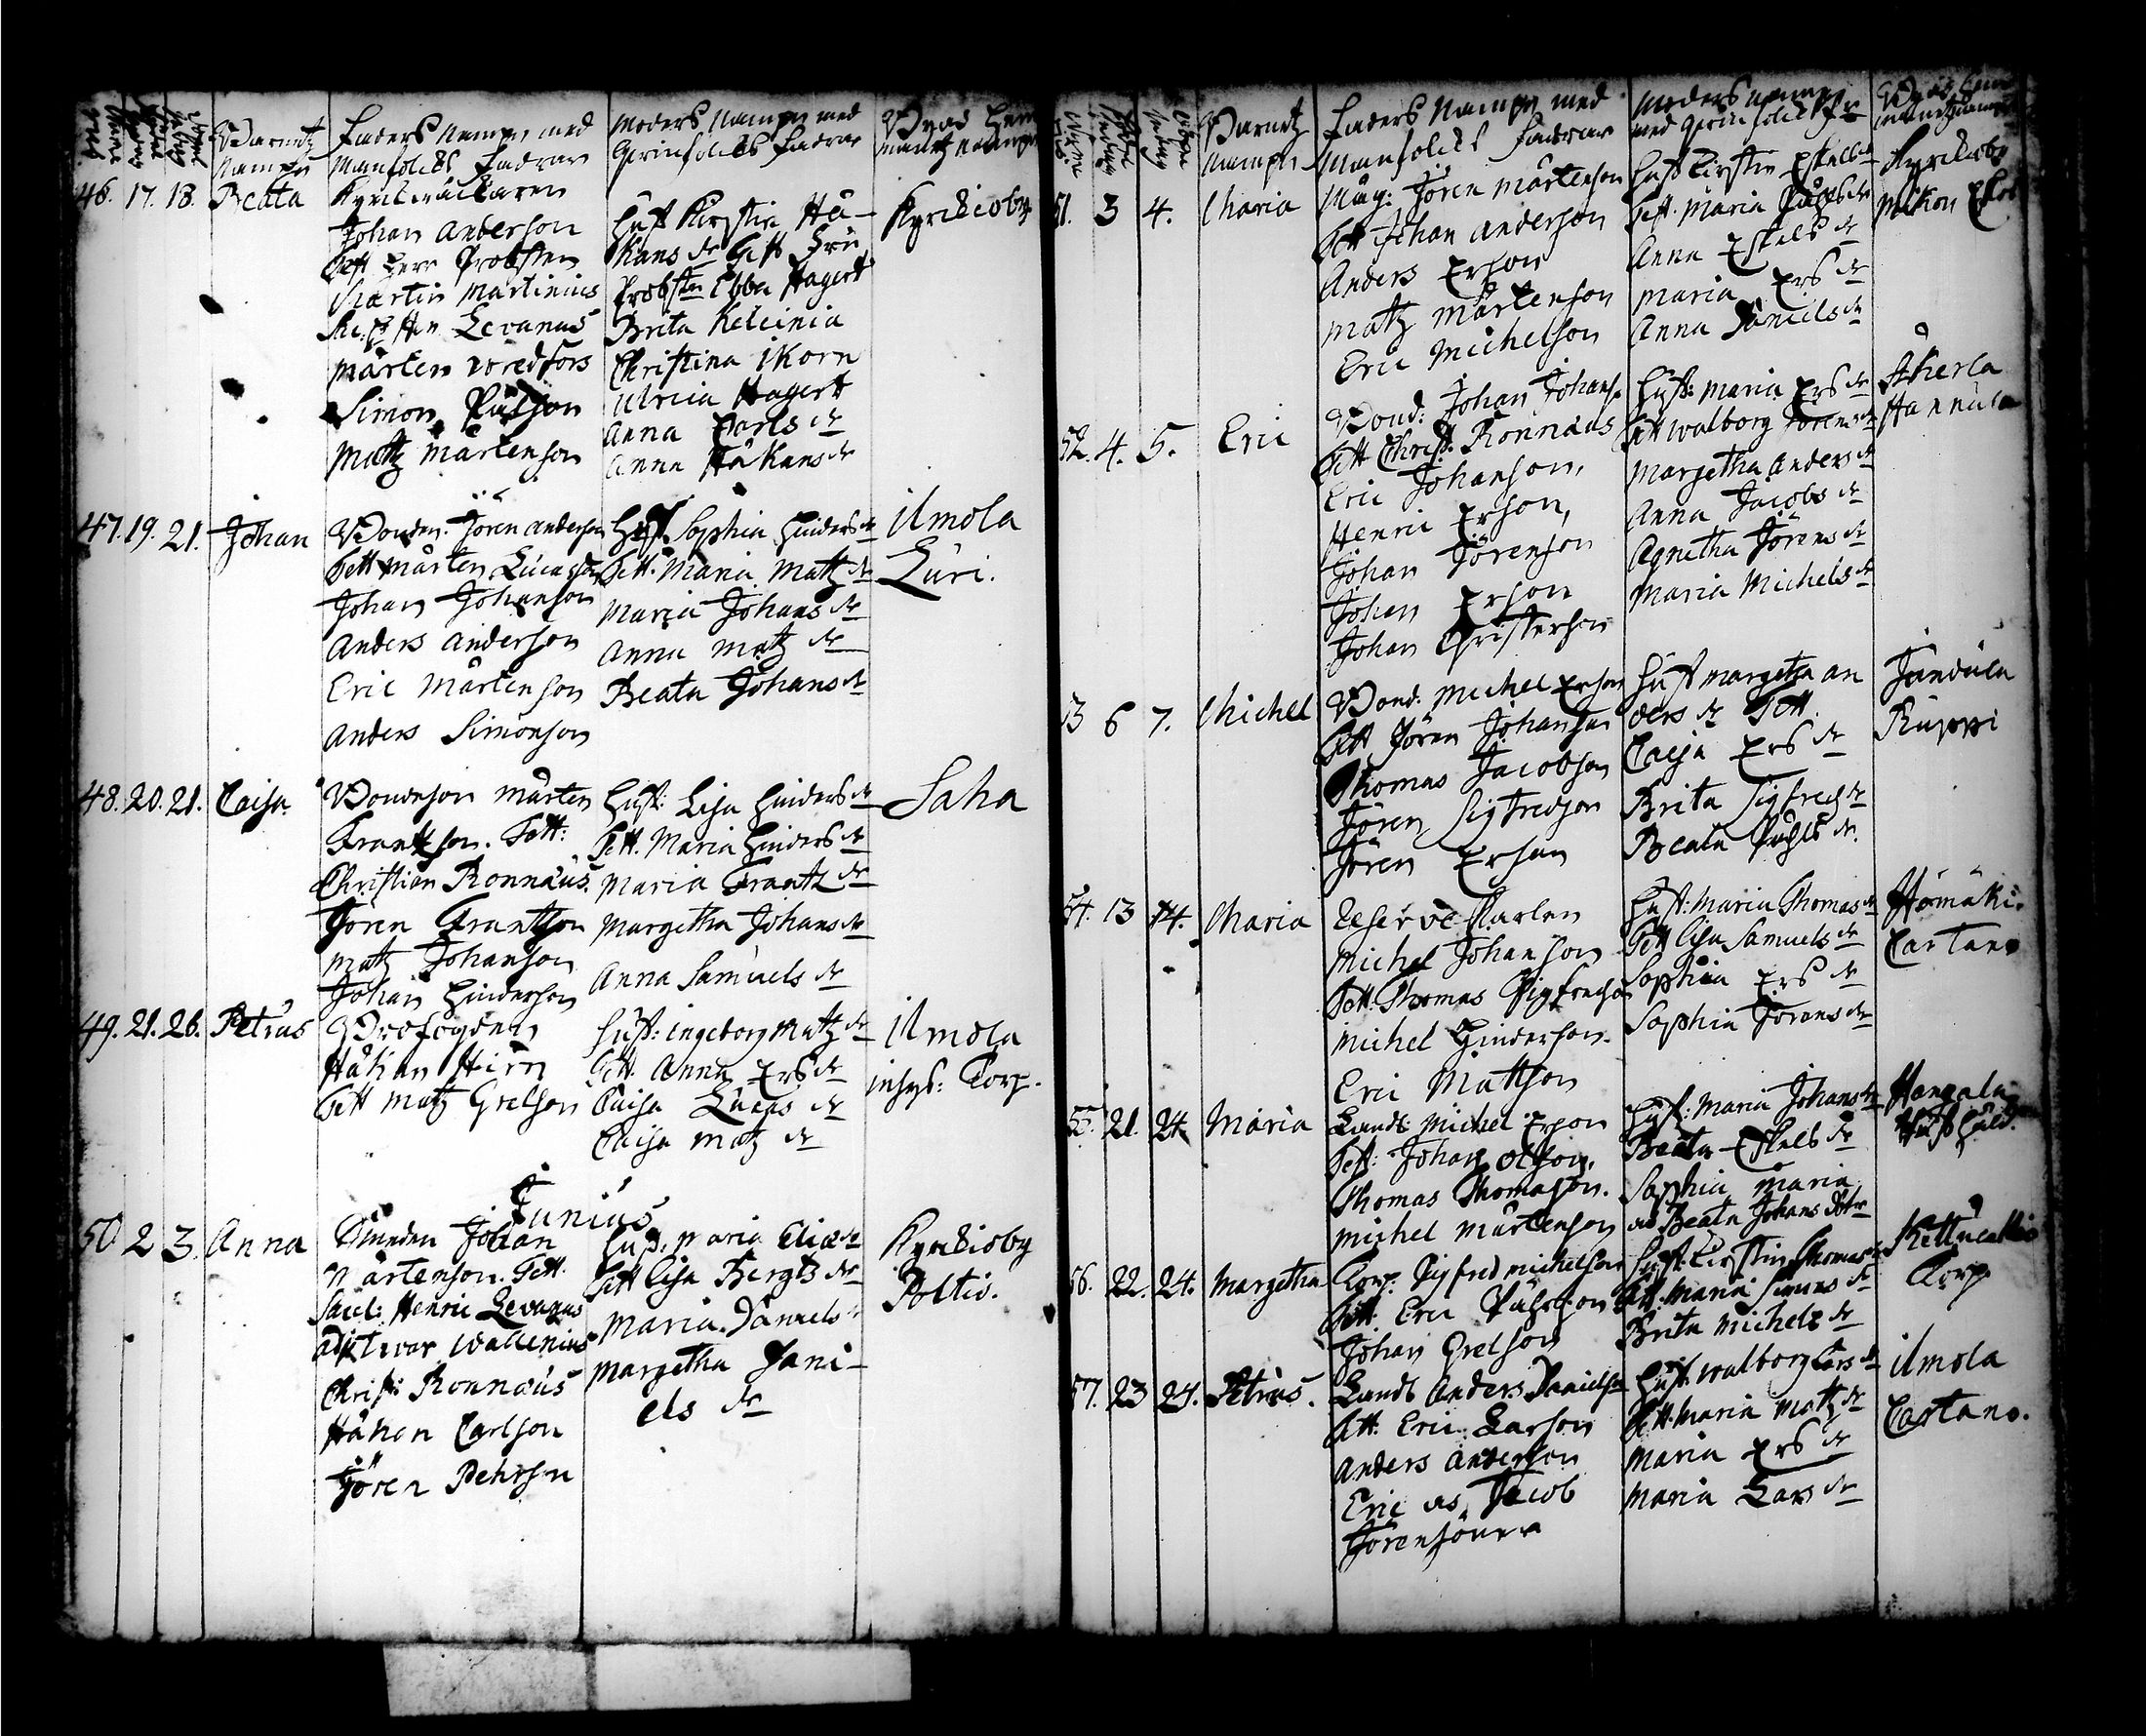 Barnetz Nampn
Faders nampn med
Manfolcks Fadrar
Moders nampn med
Qvinfolcks Fadrar
46. 17. 18. Beata
Kyrckiväcktaren
Johan Anderson
Test Herr Probsten
Martin Martinius
Levanus
Mårten
Simon Påhlson
Matz Mårtenson
Hust Kirstin Hå-
kans dr Test Fru
Probstin Ebba Hagert
Brita Keleinia
Christina Ikorn
Ulrica Hagert
Anna Carls dr
Anna Håkans dr
Kyrckioby
47. 19. 21. Johan
Bonden. Jören Anderson
Test Mårten Lucasson
Johan Johanson
Anders Anderson
Eric Mårtenson
Anders Simonson
Hust Sophia Hinders dr
Test. Maria Matz dr
Maria Johans dr
Anna Matz dr
Beata Johans dr
Ilmola
Luri.
48. 20. 21. Caisa
Bondeson Mårten
Frantzson. Test:
Christian Ronnäus.
Jören Frantzson
Matz Johanson
Johan Hinderson
Hust: Lisa Hinders dr
Test. Maria Hinders dr
Maria Frantz dr
Margetha Johans dr
Anna Samuels dr
Saha
49. 21. 26. Petrus
Brofogden
Håkan Hirn
Test Matz Grelson
Hust: Ingeborg Matz dr
Test. Anna Ers dr
Caisa Lucas dr
Caisa Matz dr
Ilmola
inhys: Torp.
Junius
50 2 3. Anna
Johan
Mårtenson. Test.
Sacel: Henric Levanus
Wallenius
Christ: Ronnæus
Håkan Carlson
Jören Pehrson
Hust. Maria Eliæ dr
Test Lisa Bergts dr
Maria Daniels dr
Margetha Dani-
els dr
Kyrckioby
Poltis.
Barnetz
Nampn
Faders Nampn med
Manfolcks Fadrar
Moders nampn
med Qvinfolcks Fr
51. 3 4. Maria
Jören Mårtenson
Test Johan Anderson
Anders Erson
Matz Mårtenson
Eric Michelson
Hust Kirstin Eskels dr
Test. Maria Påhls dr
Anna Eskels dr
Maria Ers dr
Anna Daniels dr
Kyrckioby
52. 4. 5. Eric
Bond: Johan Johans.
Test Christ. Ronnæus
Eric Johanson,
Henric Erson,
Johan Jörenson
Johan Erson
Johan Christerson
Hust: Maria Ers dr
Test Walborg Jörens dr
Margetha Anders dr
Anna Jacobs dr
Agnetha Jörens dr
Maria Michels dr
Åkerla
Hannula
53 6 7. Michel
Bond. Michel Erson
Test Jören Johanson
Thomas Jacobson
Jören Sigfredson
Jören Erson
Hust Margetha An
ders dr Test.
Caisa Ers dr
Brita Sigfreds dr
Beata Påhls dr.
Jåndula
Ruppi
54. 13 14. Maria
Reserve Karlen
Michel Johanson
Test. Thomas Sigfredson
Michel Hinderson.
Eric Mattson
Hust: Maria Thomas dr
Test Lisa Samuels dr
Sophia Ers dr
Sophia Jörens dr
Cartano
55. 21. 24. Maria
Landb: Michel Erson
Test: Johan Olson,
Thomas Thomason.
Michel Mårtenson
Hust: Maria Johans dr
Beata Eskels dr
Sophia Maria
os Beata Johans dötr
56. 22. 24. Margetha
Torp. Sigfred Michelson
Test. Eric Påhlson
Johan Grelson
Hust: Kirstin Thomas dr
Test. Maria Simons dr
Brita Michels dr
Torp
57. 23 24. Petrus.
Landb Anders Danielson
Test. Eric Larson
Anders Anderson
Eric os Jacob
Jörensöner
Hust Walborg Lars dr
Test. Maria Matz dr
Maria Ers dr
Maria Lars dr
Ilmola
Cartano.